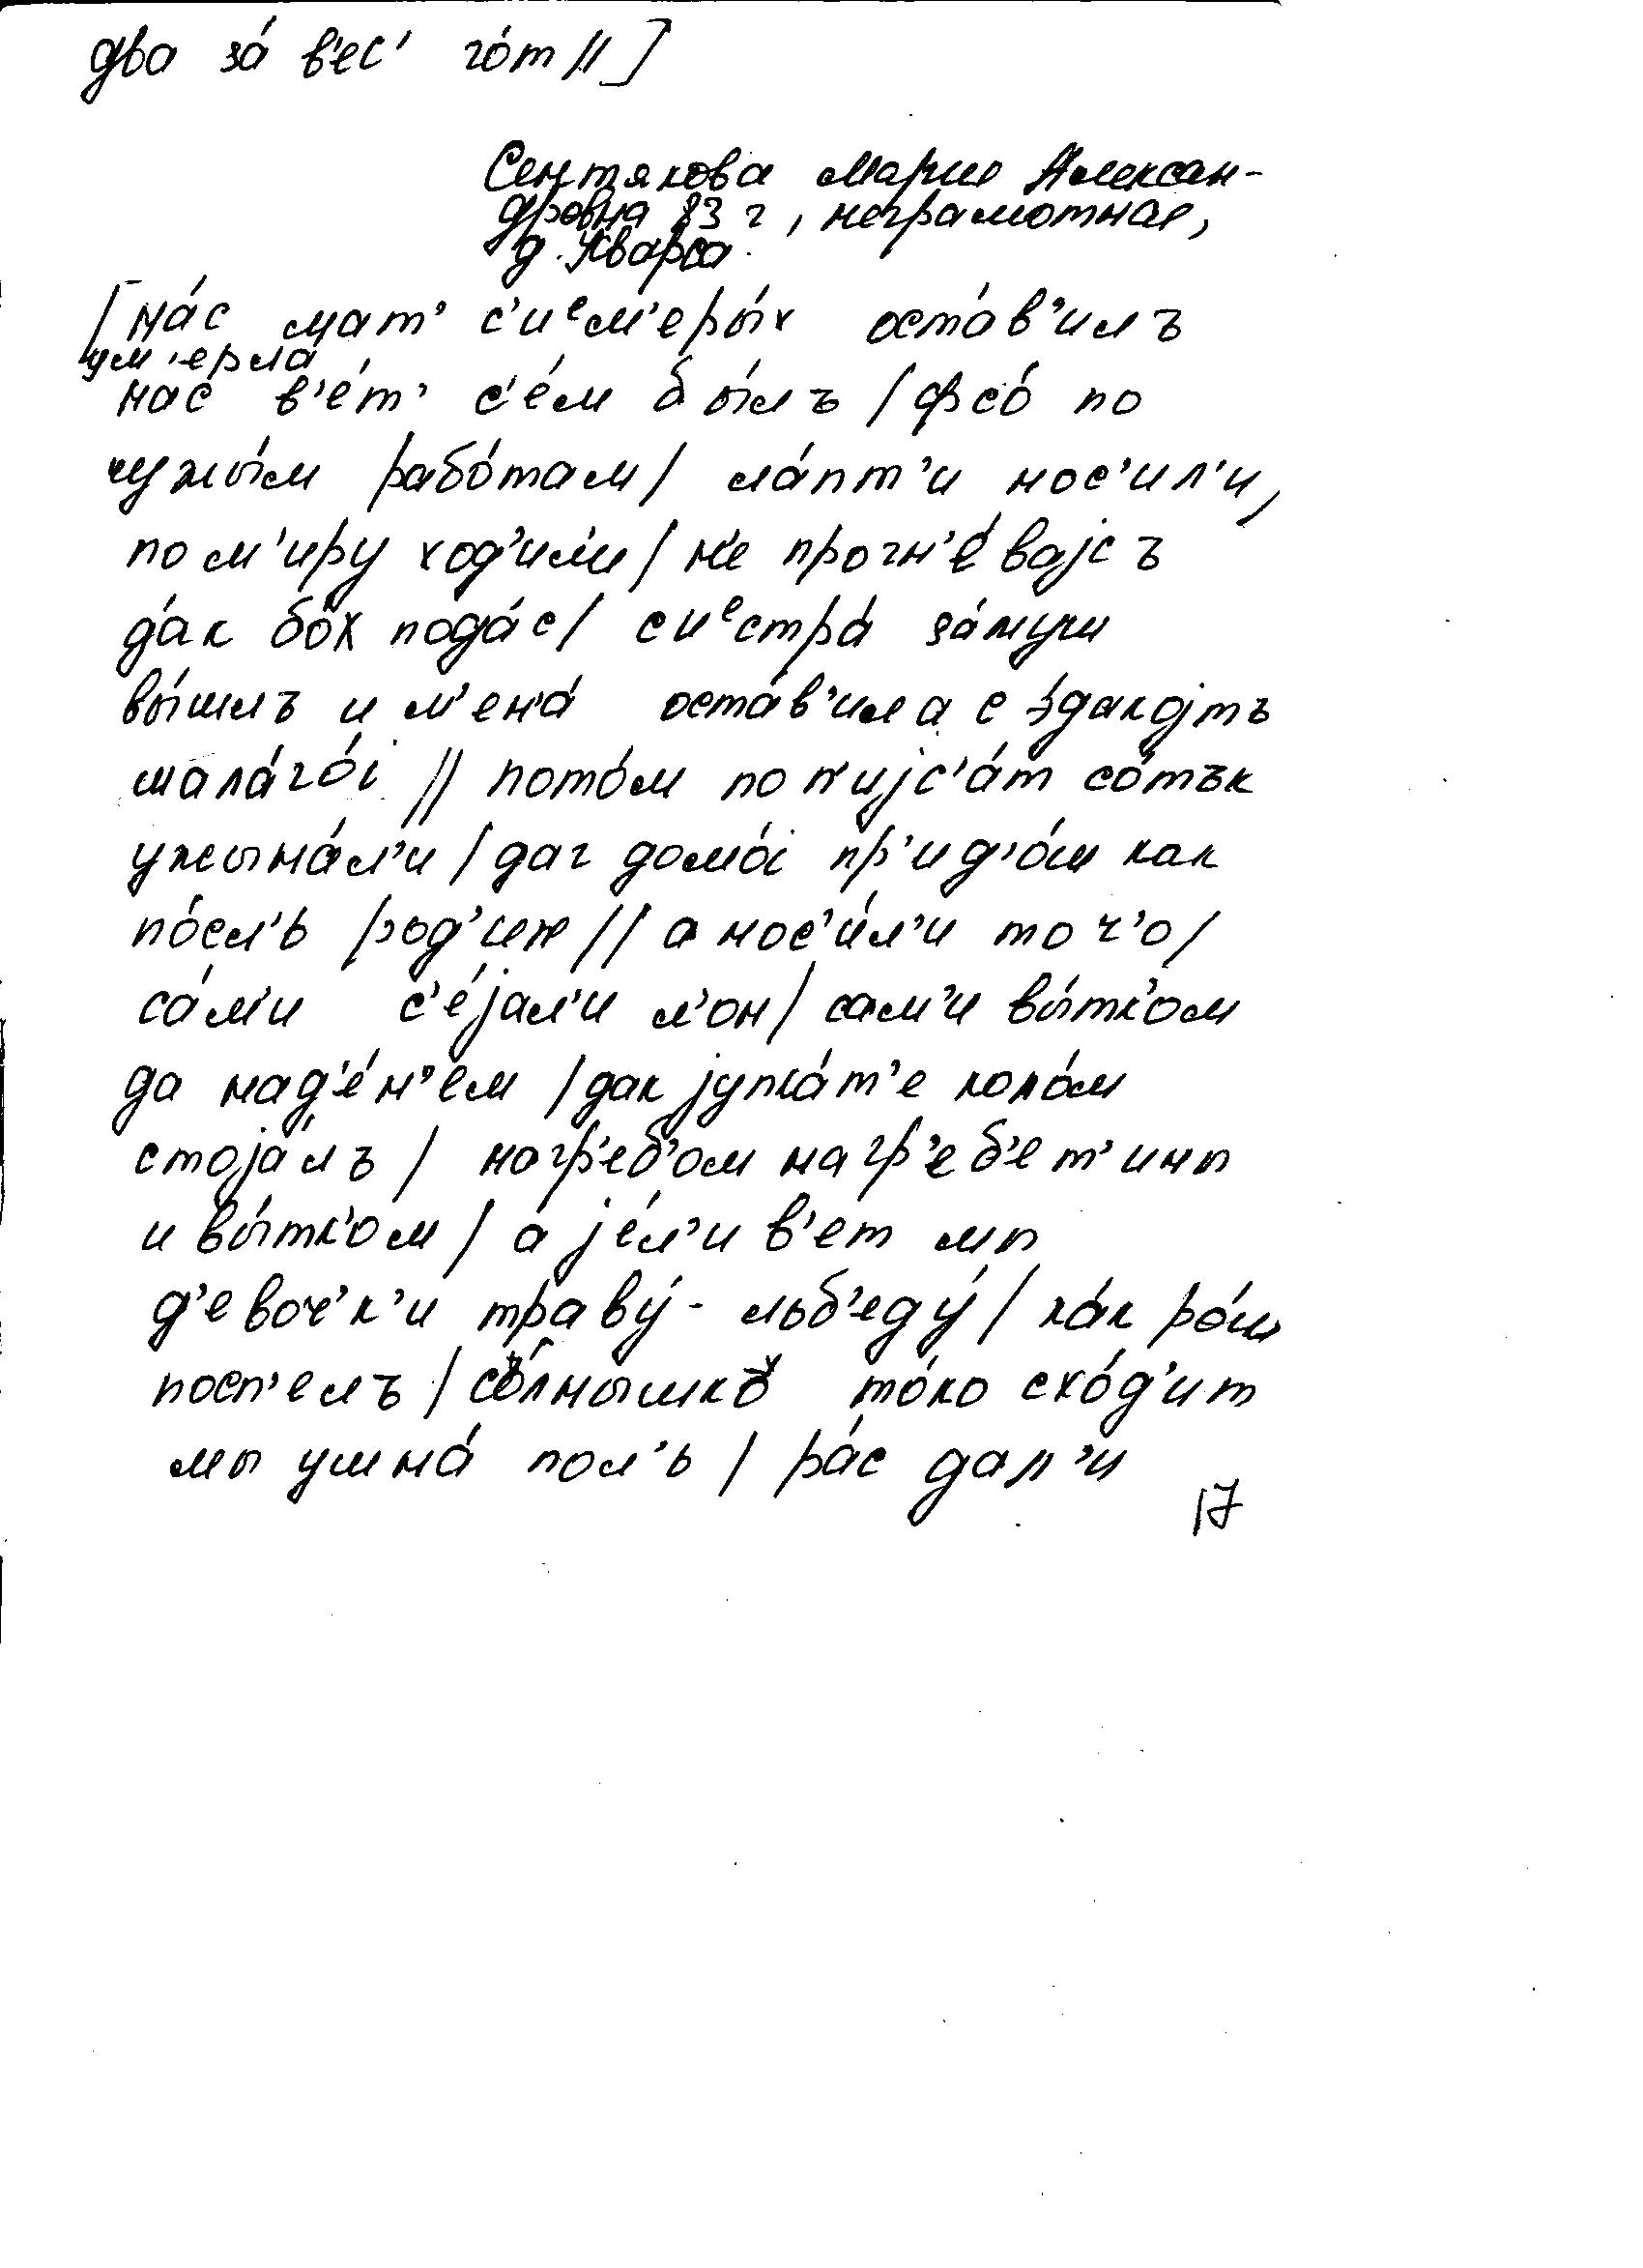 два за́ в'ес' го́т //]
Сентякова Мария Алексан-
дровна 83 г, неграмотная,
д. Кварса.
[на́с мат' с'иᵉм'еры́х оста́в'илъ
ум'ерла́
нас в'е́т' с'е́м бы́лъ / фсо́ по
чужы́м рабо́там / ла́пт'и нос'ил'и,
по м'иру ход'ил'и / н'е прогн'е́вајсъ
да́к бо́х пода́с / сиᵉстра́ за́муш
вы́шлъ и м'ена́ оста́в'ила с э́дакојтъ
мала́го́ј // пото́м по п'ијс'а́т со́тък
ужына́л'и / даг домо́ј пр'ид'о́ш как
по́сл'ь род'ин // а нос'и́л'и то ч'о /
са́м'и с'е́јал'и л'он / сам'и вы́тк'ом
да над'е́н'ем / дак јупка́т'е коло́м
стоја́лъ / нагр'еб'ом нагр'еб'ет'ины
и вы́тк'ом / а је́л'и в'ет мы
д'евоч'к'и траву́ - льб'еду́ / ка́к ро́ш
посп'елъ / со́лнышкъ то́ко схо́д'ит
мы уш на́ пол'ь / ра́с дал'и
17